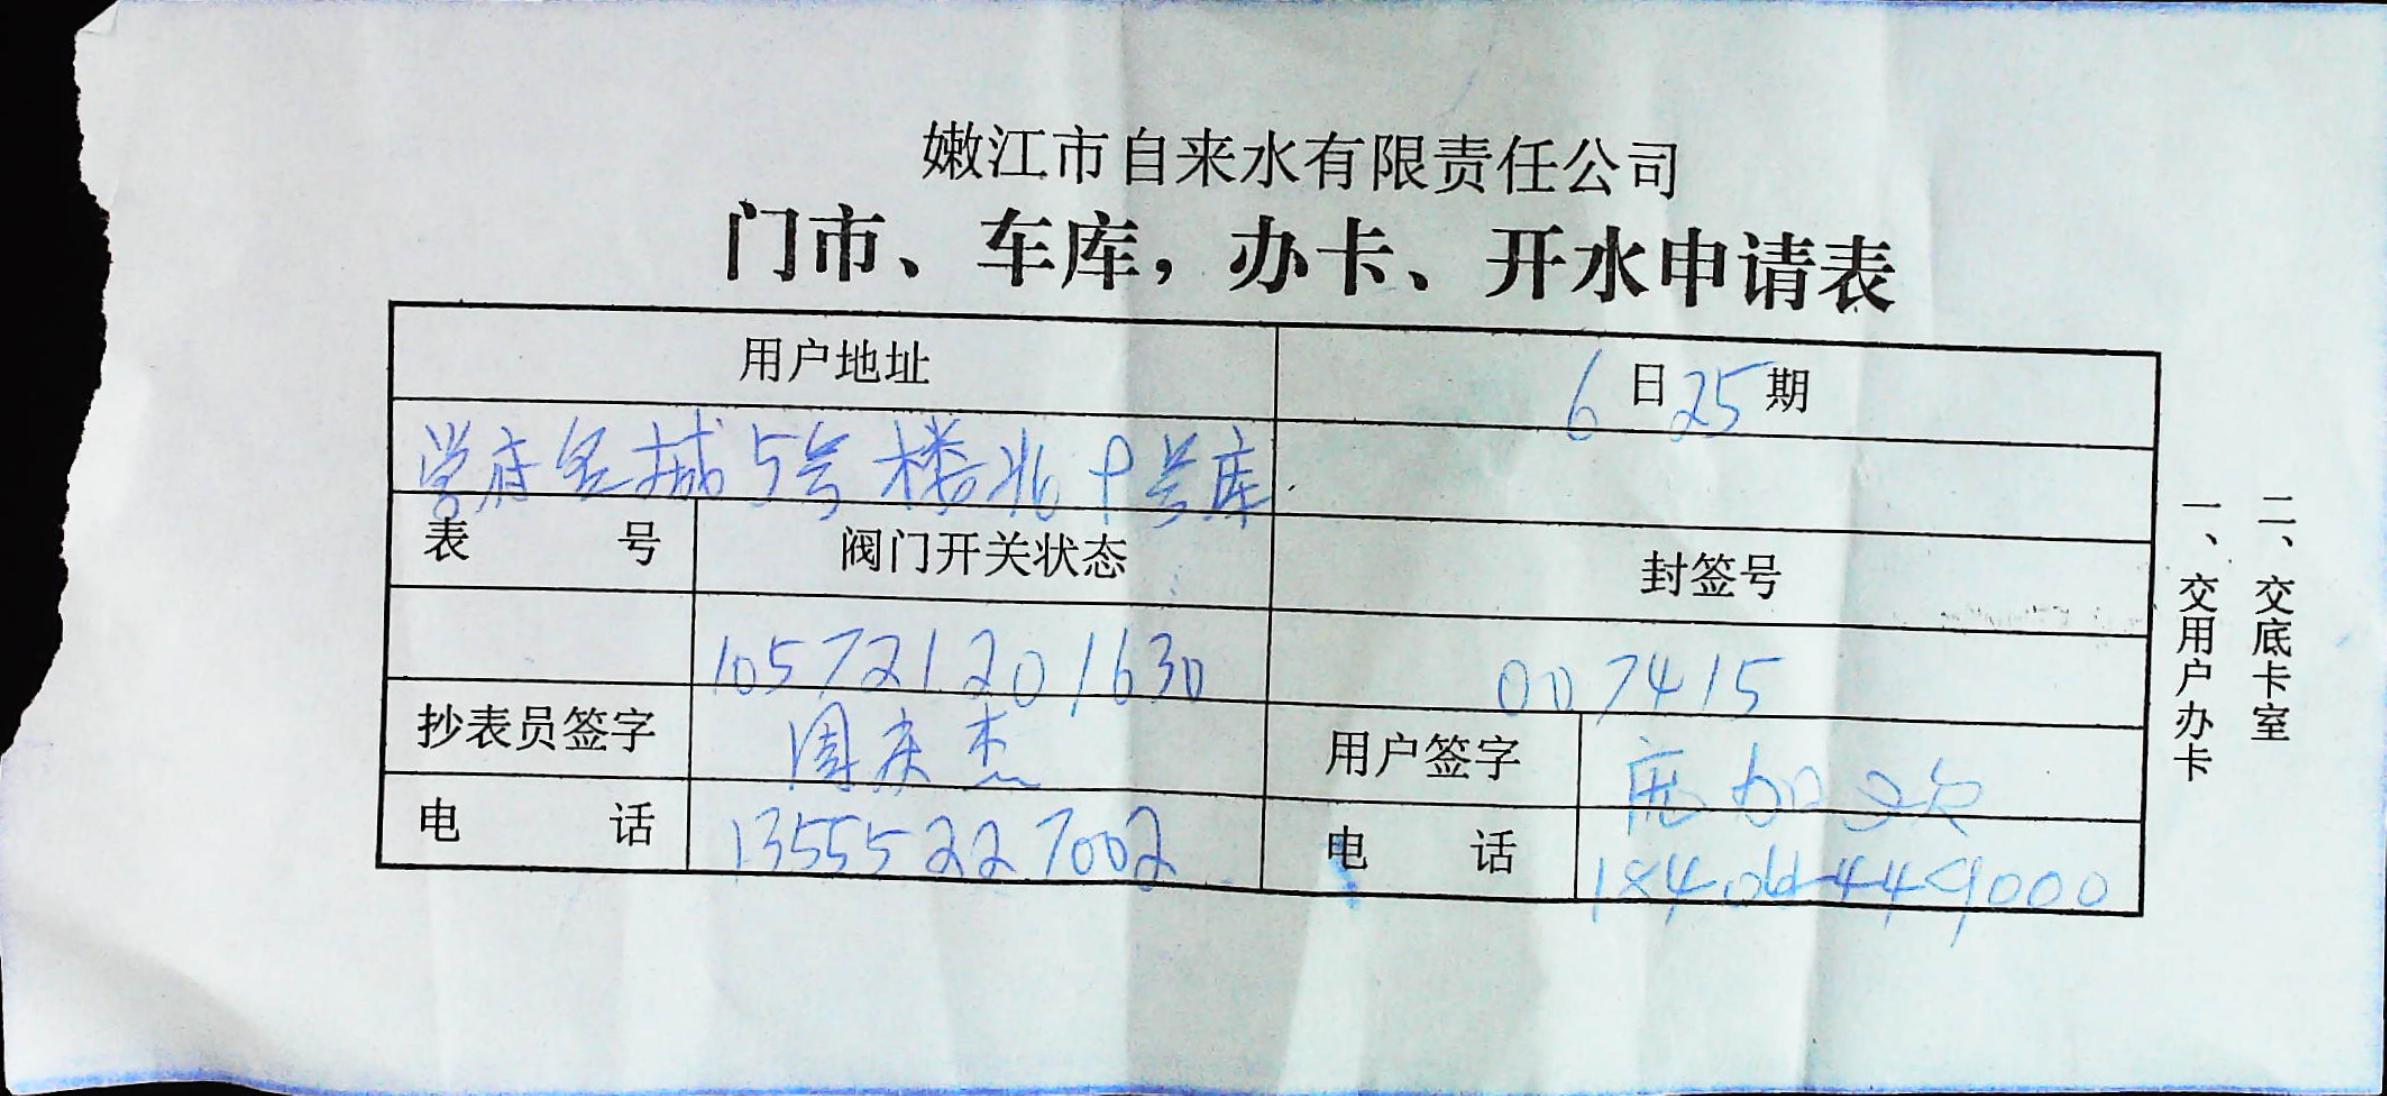 嫩江市自来水有限责任公司
门市、车库，办卡、开水申请表
用户地址 6日25期
学府名城5号楼北十号库
表 号 阀门开关状态 封签号
105721201630 007415
抄表员签字 周庆杰 用户签字
电 话 13555227002 电 话
一、交用户办卡
二、交底卡室